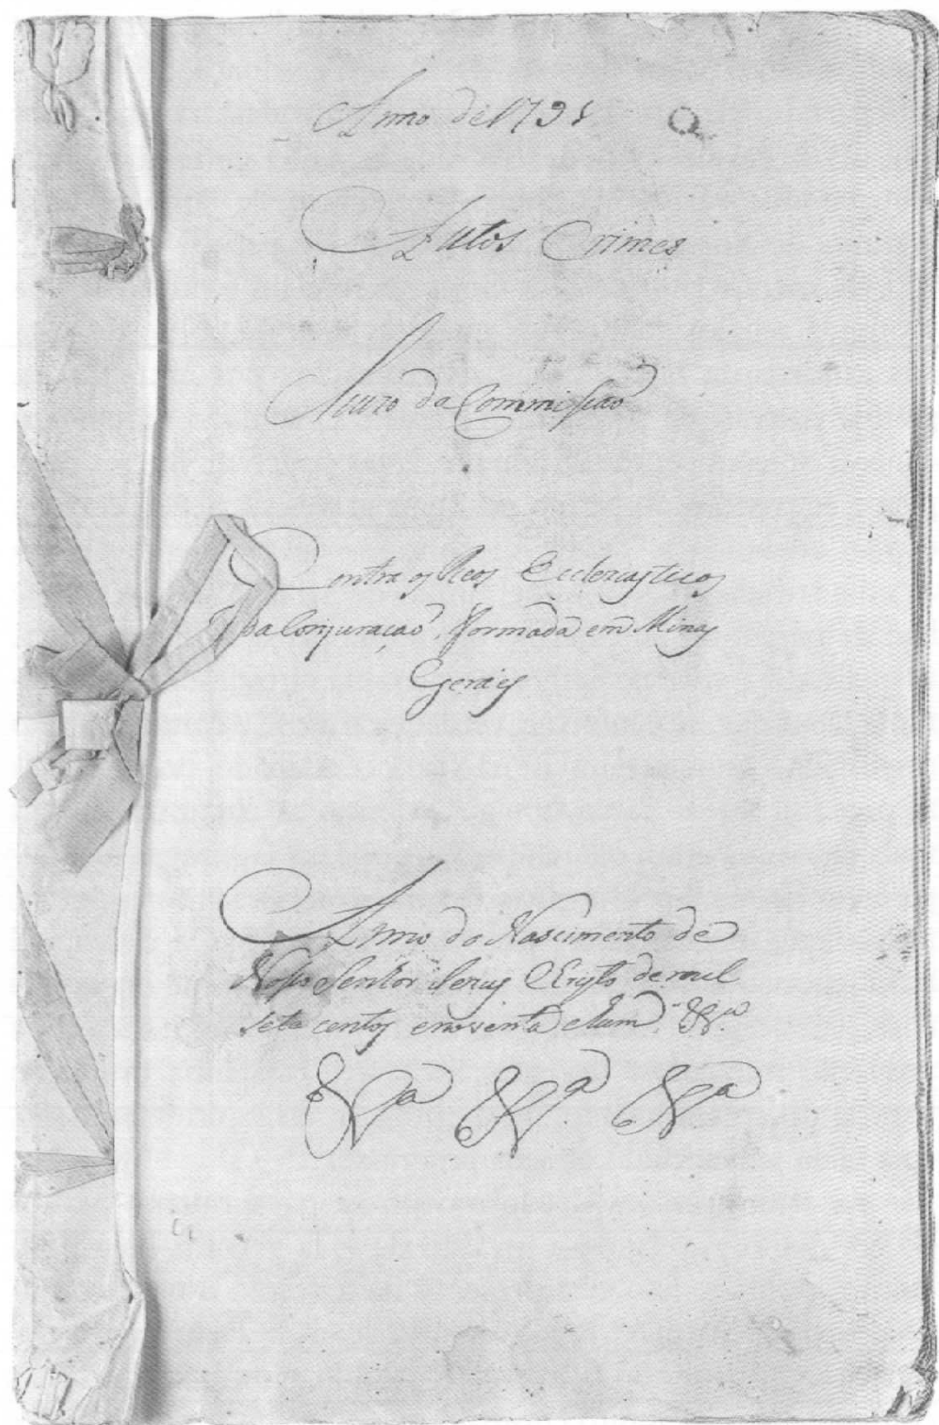 Anno de 1791
Autos Crimes
Juizo da Commissão
Contra os Reos Eclesiasticos
da Conjuração, formada em Minas
Geraes
Anno do Nascimento de
Nosso Senhor Jesus Christo de mil
sete centos e noventa e hum &.ª
&ª &ª &ª